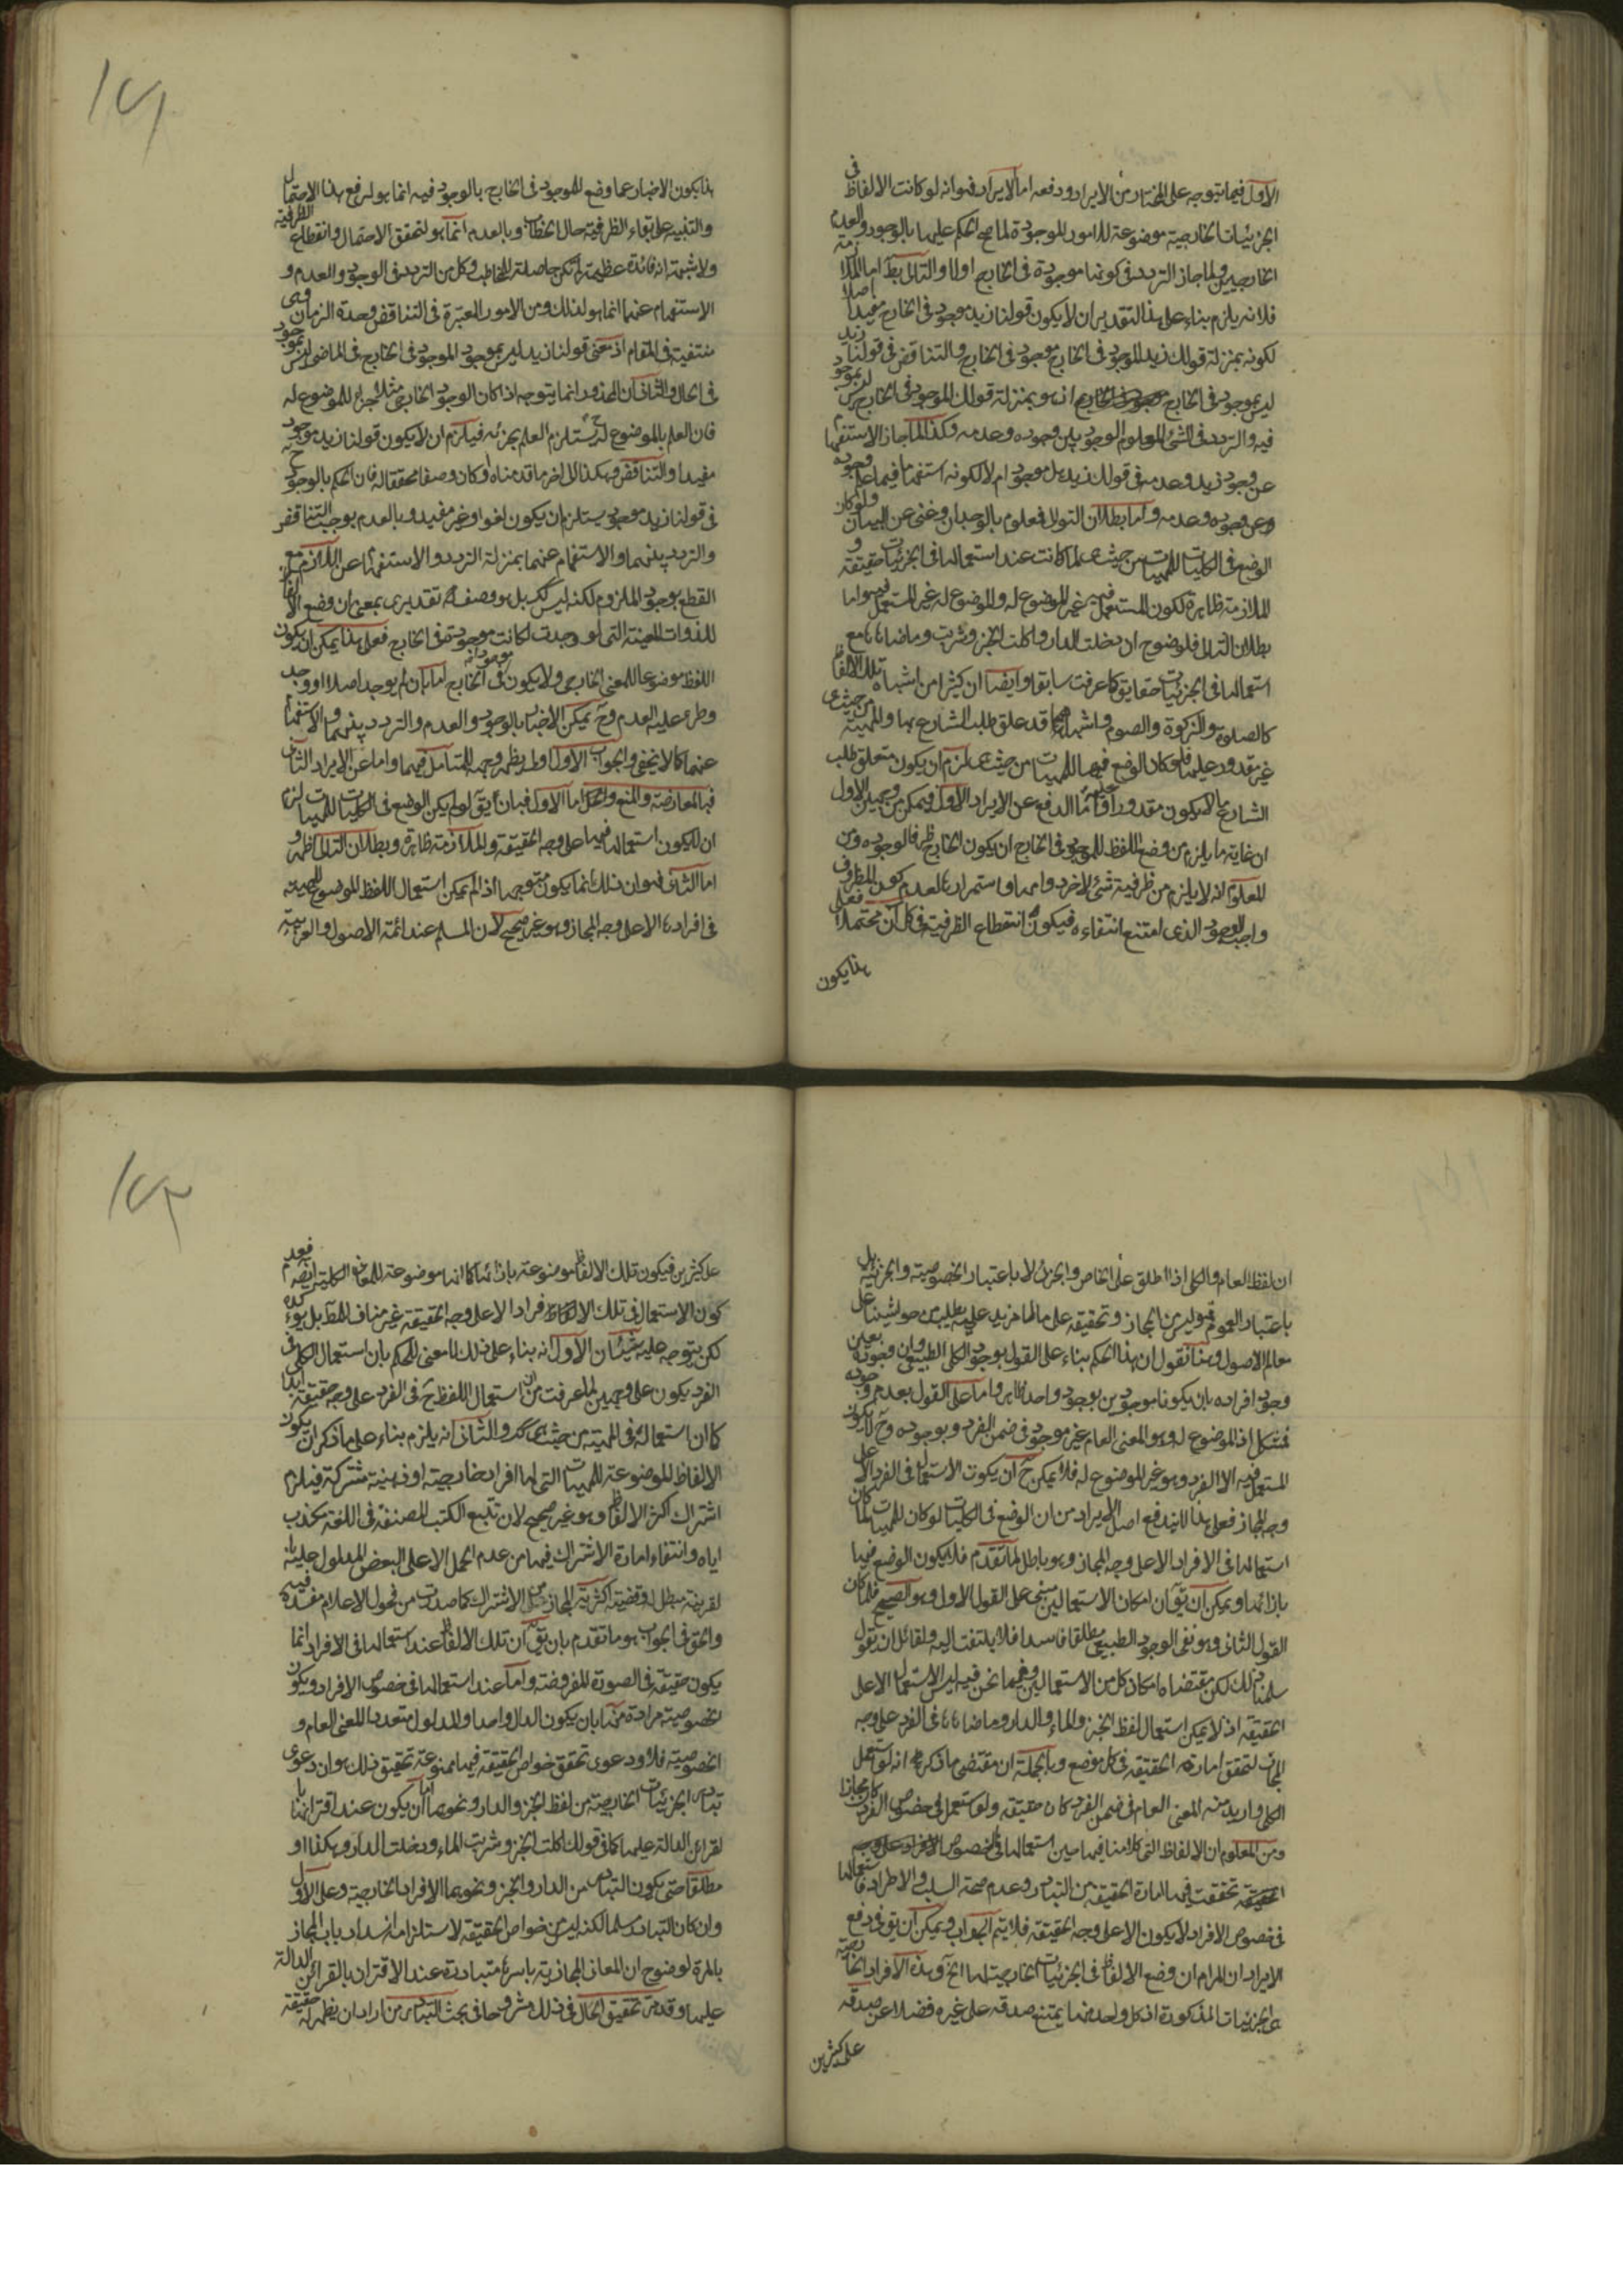 الاول فيما يتوجه على المختار من الايراد ودفعه اما الايراد فهو انه لو كانت الالفاظ في
الجزئيات الخارجية موضوعة للامور الموجودة لما صح الحكم عليها بالوجود والعدم
الخارجيين ولما جاز التردد في كونها موجودة في الخارج اولا والتالي بط اما الملازمة
فلانه يلزم بناء على هذا التقدير ان لا يكون قولنا زيد موجود في الخارج مفيدا اصلا
لكونه بمنزلة قولك زيد الموجود في الخارج موجود في الخارج والتناقض في قولنا زيد
ليس بموجود في الخارج اذ هو بمنزلة قولك الموجود في الخارج ليس بموجود
فيه والتردد في الشئ المعلوم الوجود بين وجوده وعدمه وكذا لما جاز الاستفهام
عن وجود زيد وعدمه في قولك زيد هل موجود ام لا لكونه استفهاما فيما علم وجوده
وعن وجوده وعدمه واما بطلان التوالي فمعلوم بالوجدان وغنى عن البيان ولو كان
الوضع في الكليات للمهيات من حيث هي لما كانت عند استعمالها في الجزئيات حقيقة و
الملازمة ظاهرة لكون المستعمل فيه غير الموضوع له والموضوع له غير المستعمل فيه واما
بطلان التالي فلوضوح ان دخلت الدار واكلت الخبز وشربت وماضاهاها مع
استعمالها في الجزئيات حقايق كما عرفت سابقا وايضا ان كثيرا من اشباه تلك الالفاظ
كالصلوة والزكوة والصوم واشباهها قد علق طلب الشارع بها والمهية من حيث هي
غير مقدور عليها فلو كان الوضع فيها للمهيات من حيث هي لزم ان يكون متعلق طلب
الشارع ما لا يكون مقدورا عليه واما الدفع عن الايراد الاول فيمكن من وجهين الاول
ان غاية ما يلزم من وضع اللفظ للموجود في الخارج ان يكون الخارج ظرفا لوجوده ومن
المعلوم انه لا يلزم من ظرفية شئ لاخر دوامها واستمرارها لعدم كون المظروف
واجب الوجود الذي امتنع انتفاءه فيكون انقطاع الظرفية في كل آن محتملا فعلى
هذا يكون
هذا يكون الاخبار عما وضع للموجود في الخارج بالوجود فيه انما هو لرفع هذا الاحتمال
والتنبيه على بقاء الظرفية حال الخطاب وبالعدم انما هو لتحقق الاحتمال وانقطاع الظرفية
ولا شبهة انه فائدة عظيمة لم تكن حاصلة للمخاطب وكل من التردد في الوجود والعدم و
الاستفهام عنهما انما هو لذلك ومن الامور المعتبرة في التناقض وحدة الزمان وهي
منتفية في المقام اذ معنى قولنا زيد ليس بموجود الموجود في الخارج في الماضي ليس بموجود
في الحال والثاني ان المحذور انما يتوجه اذا كان الوجود الخارجي مثلا جزاء للموضوع له
فان العلم بالموضوع له ح يستلزم العلم بجزئه فيلزم ان لا يكون قولنا زيد موجود
مفيدا والتناقض وهكذا الى اخر ما قدمناه او كان وصفا محققا له فان الحكم بالوجود ح
في قولنا زيد موجود يستلزم ان يكون لغوا وغير مفيد وبالعدم يوجب التناقض
والتردد بينهما والاستفهام عنهما بمنزلة التردد والاستفهام عن اللازم مع
القطع بوجود الملزوم لكنه ليس كك بل هو وصف له تقديري بمعنى ان وضع الالفاظ
للذوات المعينة التي لو وجدت لكانت موجودة في الخارج فعلى هذا يمكن ان يكون
اللفظ موضوعا للمعنى الخارجي ولا يكون موجودا في الخارج اما بان لم يوجد اصلا او وجد
وطرء عليه العدم وح يمكن الاخبار بالوجود والعدم والتردد بينهما والاستفهام
عنهما كما لا يخفى والجواب الاول اولى يظهر وجهه للمتامل فيهما واما عن الايراد الثاني
فبالمعارضة والمنع والحل اما الاول فبان يق لو لم يكن الوضع في الكليات للمهيات لزم
ان لا يكون استعمالها فيها على وجه الحقيقة والملازمة ظاهرة وبطلان التالي اظهر و
اما الثاني فهو ان ذلك انما يكون متوجها اذا لم يمكن استعمال اللفظ الموضوع للمهية
في افرادها الا على وجه المجاز وهو غير صحيح لان المسلم عند ائمة الاصول والعربية
ان لفظ العام والكلي اذا اطلق على الخاص والجزئي لا باعتبار الخصوصية والجزئية بل
باعتبار العموم فهو ليس من المجاز وتحقيقه على ما لا مزيد عليه يطلب من حواشينا على
معالم الاصول وهنا نقول ان هذا الحكم بناء على القول بوجود الكلي الطبيعي وان وجوده بعين
وجود افراده بان يكونا موجودين بوجود واحد ظاهر واما على القول بعدم وجوده
فمشكل اذ الموضوع له وهو المعنى العام غير موجود في ضمن الفرد وبوجوده وح لا يكون
المستعمل فيه الا الفرد وهو غير الموضوع له فلا يمكن ح ان يكون الاستعمال في الفرد الا على
وجه المجاز فعلى هذا لا يندفع اصل الايراد من ان الوضع في الكليات لو كان للمهيات لما كان
استعمالها في الافراد الا على وجه المجاز وهو باطل لما تقدم فلا يكون الوضع فيها
بازائها ويمكن ان يق ان امكان الاستعمالين مبني على القول الاول وهو الصحيح فلما كان
القول الثاني وهو نفى الوجود الطبيعي مطلقا فاسدا فلا يلتفت اليه ولقائل ان يقول
سلمنا ذلك لكن مقتضاه امكان كل من الاستعمالين وفيما نحن فيه ليس الاستعمال الا على
الحقيقة اذ لا يمكن استعمال لفظ الخبز والماء والدار وماضاهاها في الفرد على وجه
المجاز لتحقق امارة الحقيقة في كل موضع وبالجملة ان مقتضى ما ذكر هو انه لو استعمل
الكلي واريد منه المعنى العام في ضمن الفرد كان حقيقة ولو استعمل في خصوص الفرد كان مجازا
ومن المعلوم ان الالفاظ التي كلامنا فيها حين استعمالها في خصوص الافراد على وجه
الحقيقة تحققت فيها امارة الحقيقة من التبادر وعدم صحة السلب والاطراد فاستعمالها
في خصوص الافراد لا يكون الا على وجه الحقيقة فلا يتم الجواب ويمكن ان يق في دفع
الايراد ان المرام ان وضع الالفاظ في الجزئيات الخارجية لها الخ وهذه الافراد الخارجية
هي الجزئيات المذكورة اذ كل واحد منها يمتنع صدقه على غيره فضلا عن صدقه
على كثيرين
على كثيرين فيكون تلك الالفاظ موضوعة بازائها كما انها موضوعة للمعاني الكلية ايضا فعدم
كون الاستعمال في تلك الافراد الا على وجه الحقيقة غير مناف للمط بل يؤكده
لكن يتوجه عليه شيئان الاول انه بناء على ذلك لا معنى للحكم بان استعمال الكلي في
الفرد يكون على وجهين لما عرفت من ان استعمال اللفظ ح في الفرد على وجه حقيقة ابدا
كما ان استعماله في المهية من حيث هي كك والثاني انه يلزم بناء على ما ذكر ان يكون
الالفاظ الموضوعة للمهيات التي لها افراد خارجية او ذهنية مشتركة فيلزم
اشتراك اكثر الالفاظ وهو غير صحيح لان تتبع الكتب المصنفة في اللغة مكذب
اياه وانتفاء امارة الاشتراك فيها من عدم الحمل الا على البعض المدلول عليه
لقرينة مبطل وقضية اكثرية المجاز من الاشتراك كما صدرت من فحول الاعلام مفسدة فيه
والحق في الجواب هو ما تقدم بان يق ان تلك الالفاظ عند استعمالها في الافراد انما
يكون حقيقة في الصورة المفروضة واما عند استعمالها في خصوص الافراد ويكون
الخصوصية مرادة منها بان يكون الدال واحدا والمدلول متعددا المعنى العام و
الخصوصية فلا ودعوى تحقق خواص الحقيقة فيها ممنوعة تحقيق ذلك هو ان دعوى
تبادر الجزئيات الخارجية من لفظ الخبز والدار ونحوها اما ان يكون عند اقترانها
لقرائن الدالة عليها كما في قولك اكلت الخبز وشربت الماء ودخلت الدار وهكذا او
مطلقا حتى يكون التبادر من الدار والخبز ونحوهما الافراد الخارجية وعلى الاول
وان كان التبادر مسلما لكنه ليس من خواص الحقيقة لاستلزامه انسداد باب المجاز
بالمرة لوضوح ان المعاني المجازية باسرها متبادرة عند الاقتران بالقرائن الدالة
عليها وقد مر تحقيق الحال في ذلك مشروحا في بحث التبادر من اراد ان يظهر له حقيقة